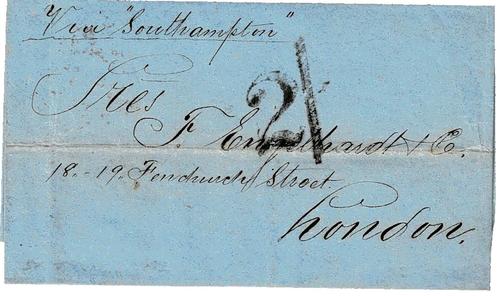 Via "Southampton"
2/
Sres
F. Engelhardt & Co.
18.-19. Fenchurch Street.
London.